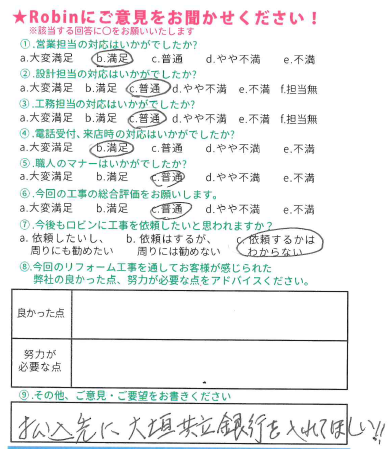 ★Robinにご意見をお聞かせください！
※該当する回答に〇をお願いいたします
①.営業担当の対応はいかがでしたか?
a.大変満足 b.満足 c.普通 d.やや不満 e.不満
②.設計担当の対応はいかがでしたか?
a.大変満足 b.満足 c.普通 d.やや不満 e.不満 f.担当無
③.工務担当の対応はいかがでしたか?
a.大変満足 b.満足 c.普通 d.やや不満 e.不満 f.担当無
④.電話受付、来店時の対応はいかがでしたか?
a.大変満足 b.満足 c.普通 d.やや不満 e.不満
⑤.職人のマナーはいかがでしたか?
a.大変満足 b.満足 c.普通 d.やや不満 e.不満
⑥.今回の工事の総合評価をお願いします。
a.大変満足 b.満足 c.普通 d.やや不満 e.不満
⑦.今後もロビンに工事を依頼したいと思われますか？
a. 依頼したいし、 b. 依頼はするが、 c. 依頼するかは
周りにも勧めたい 周りには勧めない わからない
⑧.今回のリフォーム工事を通してお客様が感じられた
弊社の良かった点、努力が必要な点をアドバイスください。
良かった点
努力が
必要な点
⑨.その他、ご意見・ご要望をお書きください
払込先に大垣共立銀行を入れてほしい!!